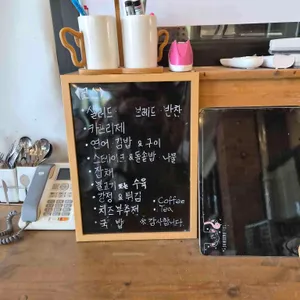 샐러드 브레드 반찬
• 카프리제
• 연어 김밥 & 구이
• 스테이크 & 돌솥밥 나물
• 잡채
• 불고기 또는 수육
• 강정 & 튀김 • Coffee
• 치즈부추전 • Tea
• 국 밥 ※감사합니다